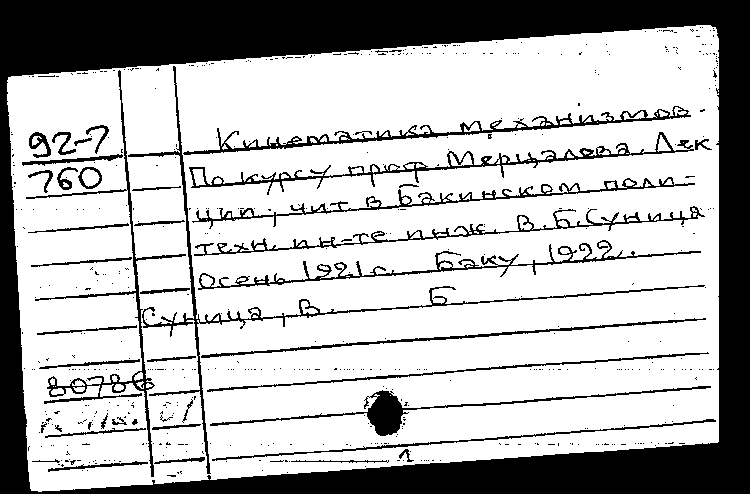 92-7 Кинематика механизмов.
760 По курсу проф. Мерцалова. Лек
ции, чит. в Бакинском поли-
техн. ин-те инж. В.Б.Суница
Осень 1921 г. Баку, 1922.
Суница, В. Б.
80786
1